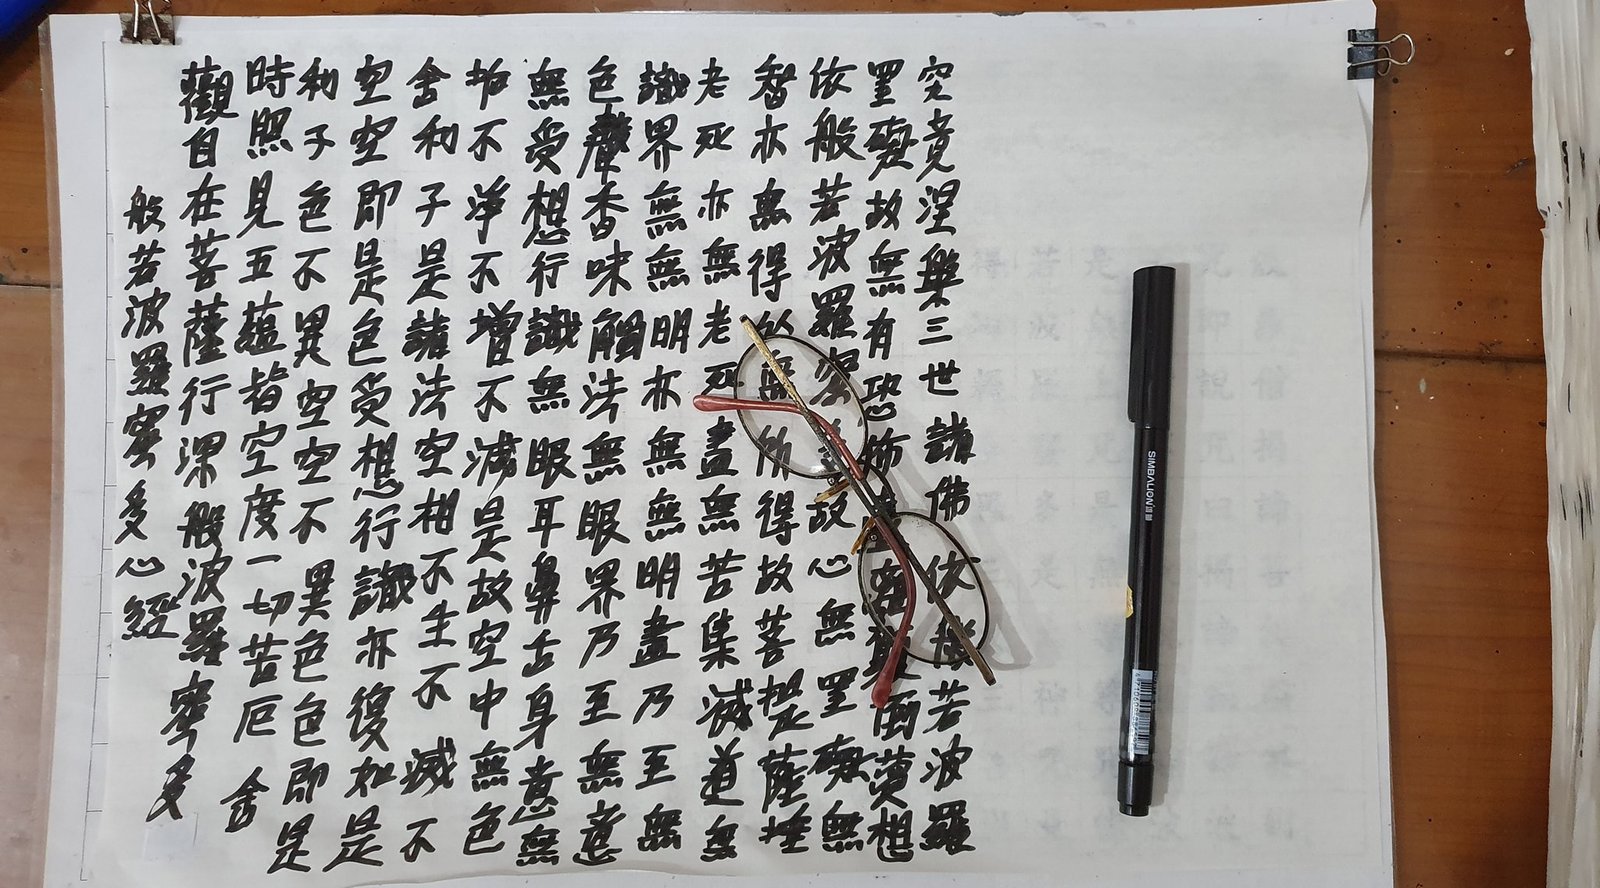 般若波羅蜜多心經
觀自在菩薩行深般波羅蜜多
時照見五蘊皆空度一切苦厄 舍
利子色不異空空不異色色即是
空空即是色受想行識亦復如是
舍利子是諸法空相不生不滅不
垢不淨不增不減是故空中無色
無受想行識無眼耳鼻舌身意無
色聲香味觸法無眼界乃至無意
識界無無明亦無無明盡乃至無
老死亦無老死盡無苦集滅道無
智亦無得以無所得故菩提薩埵
依般若波羅蜜多故心無罣礙無
罣礙故無有恐怖遠離顛倒夢想
究竟涅槃三世諸佛依般若波羅
SIMBALION 雄獅